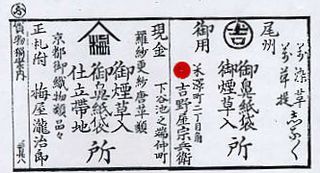 尾州
御用
御鼻紙袋
御煙草入
所
米澤町二丁目角
吉野屋宗兵衛
下谷池之端仲町
現金
羅紗更紗唐草類
御煙草入
御鼻紙袋
仕立帯地
所
京都御織物類品々
正札附
梅屋瀧治郎